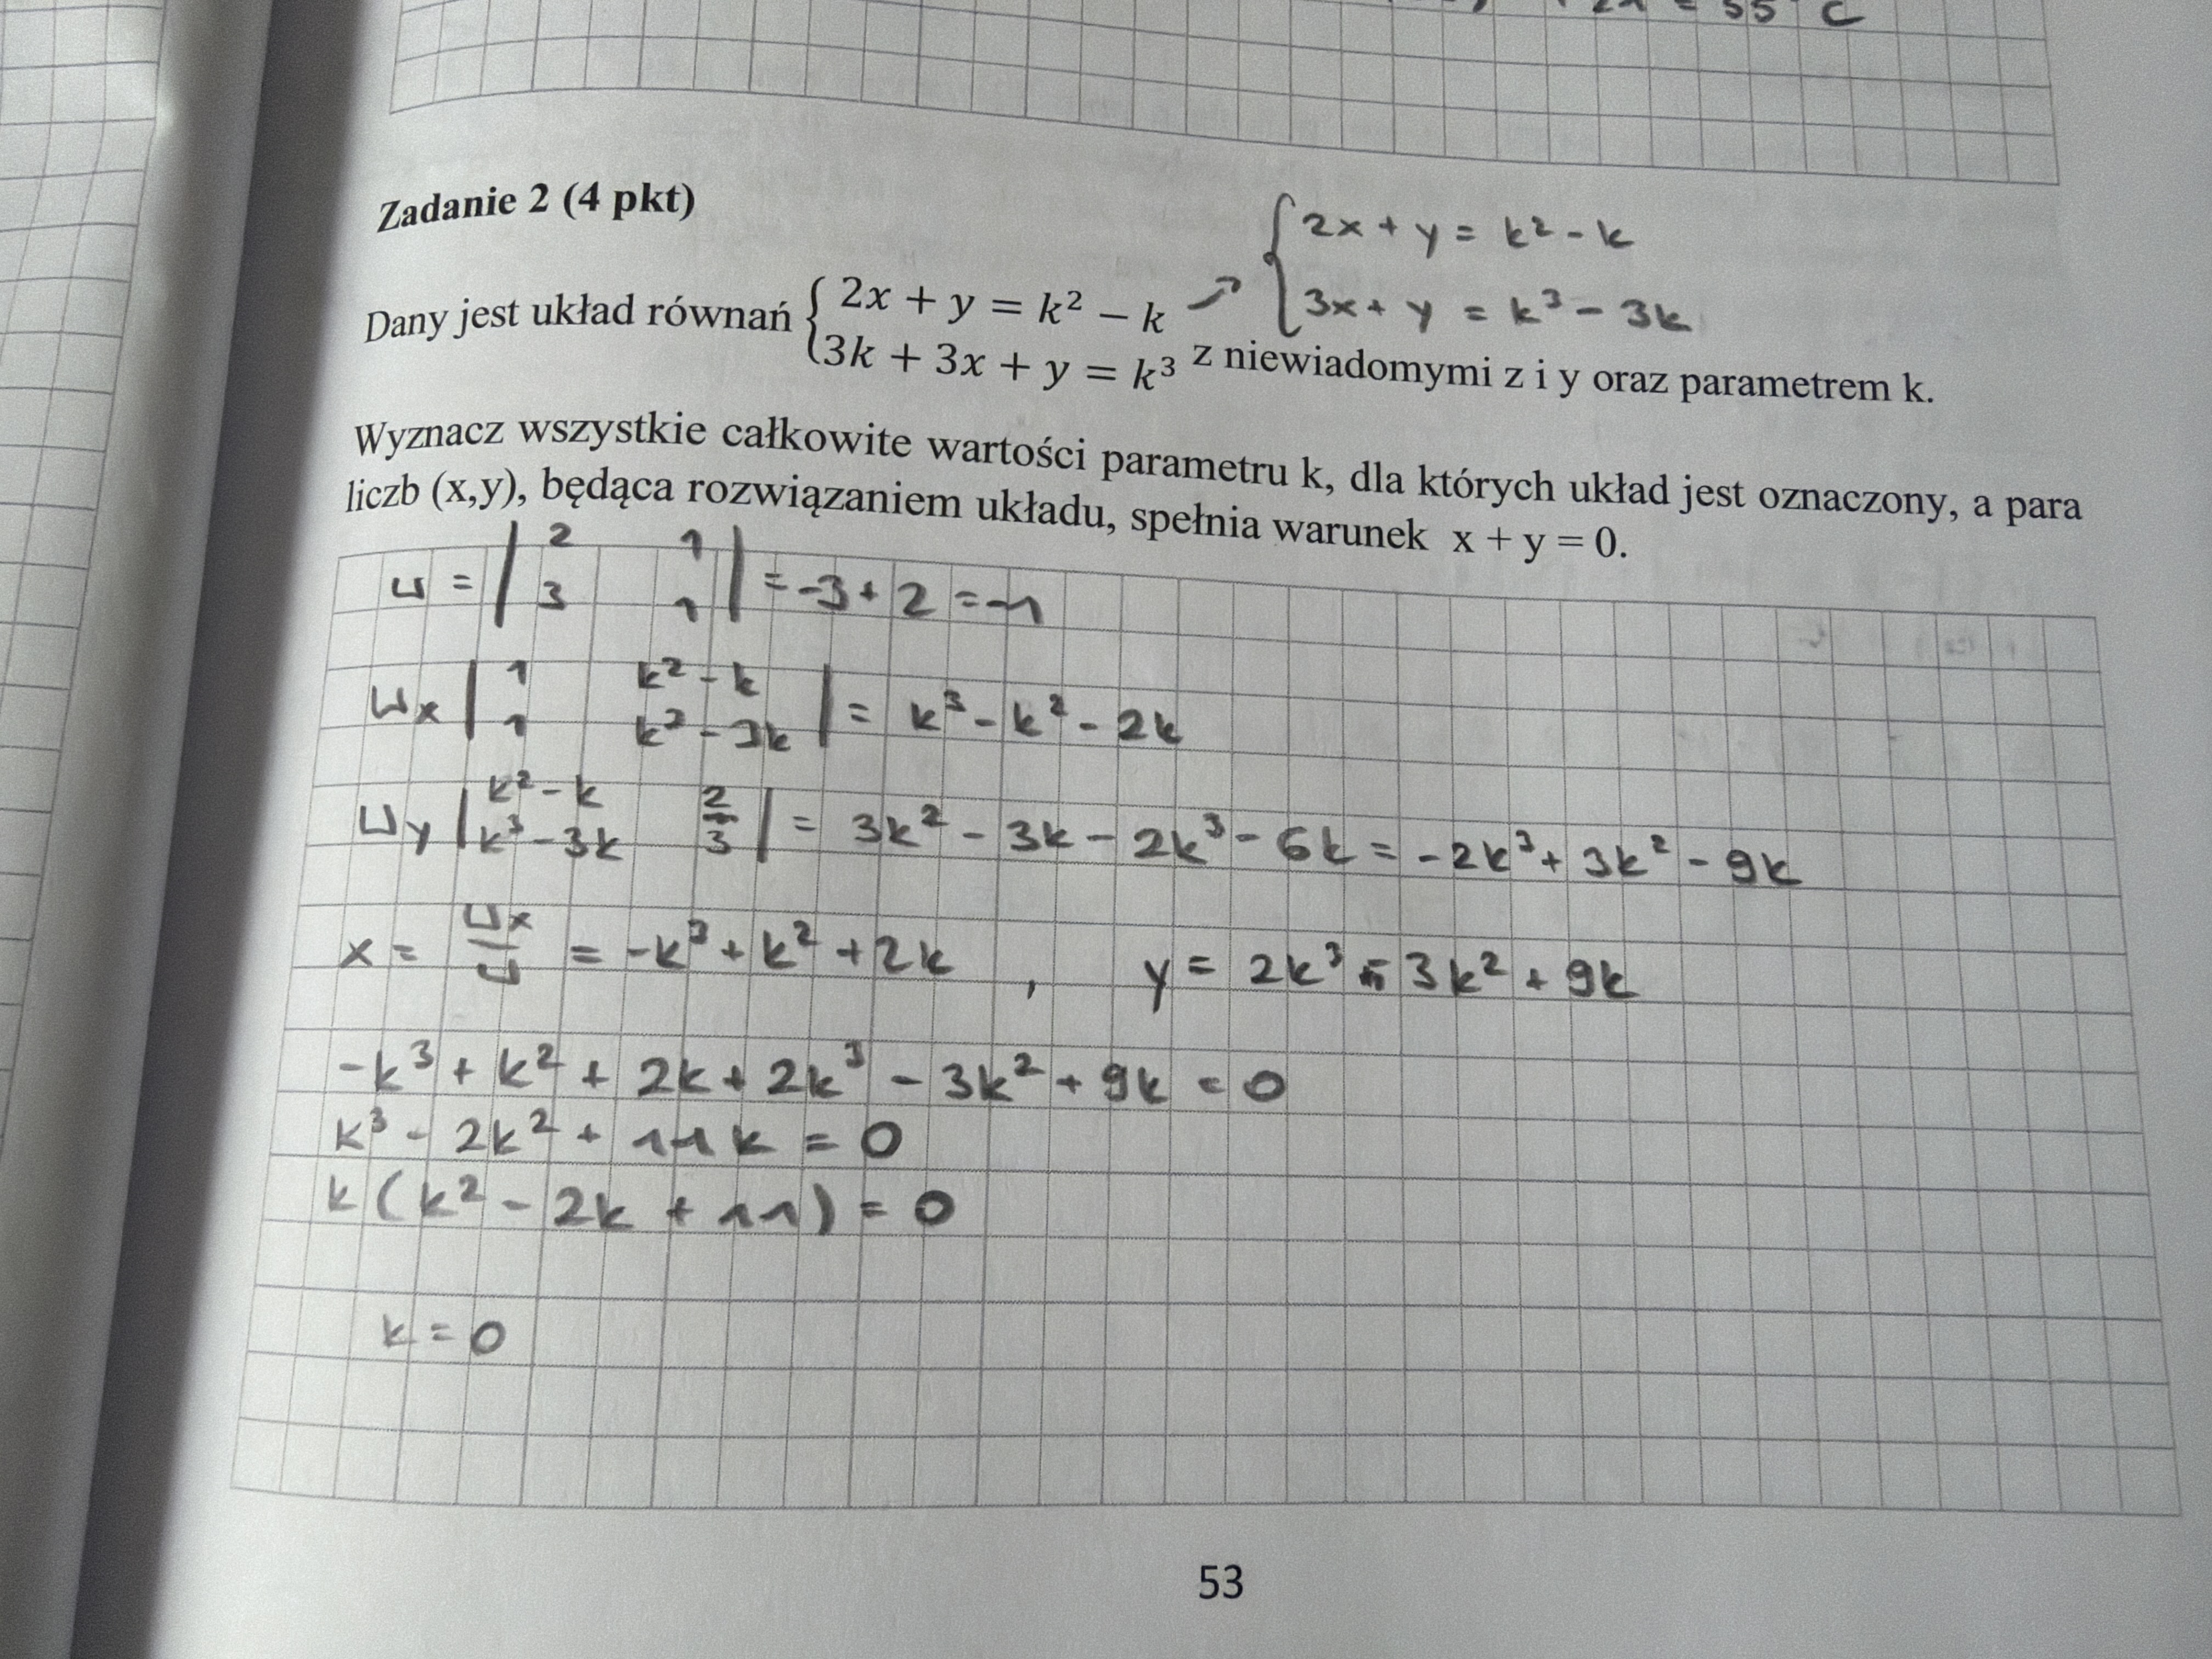 = 55°C
Zadanie 2 (4 pkt)
{2x + y = k² - k
{3x + y = k³ - 3k
Dany jest układ równań {2x + y = k² − k
{3k + 3x + y = k³ z niewiadomymi z i y oraz parametrem k.
Wyznacz wszystkie całkowite wartości parametru k, dla których układ jest oznaczony, a para
liczb (x,y), będąca rozwiązaniem układu, spełnia warunek x + y = 0.
W = | 2 1 | = -3 + 2 = -1
| 3 1 |
Wx | 1 k² - k | = k³ - k² - 2k
| 1 k³ - 3k |
Wy | k² - k 2 | = 3k² - 3k - 2k³ - 6k = -2k³ + 3k² - 9k
| k³ - 3k 3 |
x = Wx/W = -k³ + k² + 2k , y = 2k³ - 3k² + 9k
-k³ + k² + 2k + 2k³ - 3k² + 9k = 0
k³ - 2k² + 11k = 0
k(k² - 2k + 11) = 0
k = 0
53